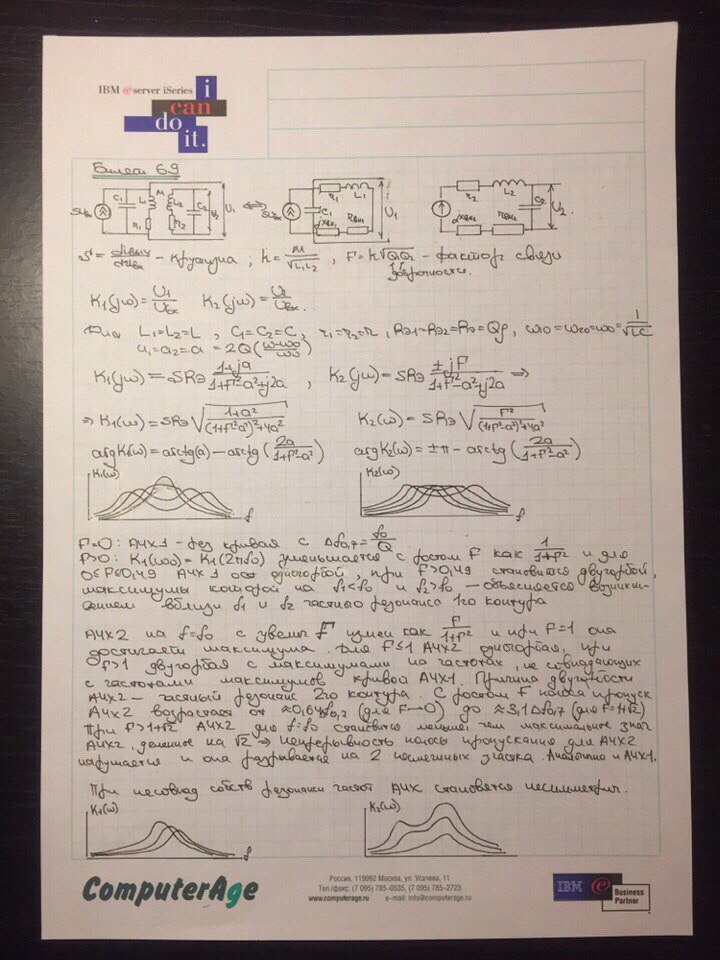 IBM @server iSeries
i
can
do
it.
Билет 69
SUвх C1 L1 M L2 C2 r1 r2 U2 U1 ⇔ SUвх C1 r1 L1 U1 r2 L2 C2 U2
S = – крутизна ; k = M/√L1L2 , F = k√Q1Q2 – фактор связи
добротности.
K1(jω) = U1/Uвх K2(jω) = U2/Uвх .
Для L1=L2=L , C1=C2=C, r1=r2=r, Rэ1=Rэ2=Rэ=Qρ, = 1/√LC
a1=a2=a=2Q((ω-ω0)/ω0)
K1(jω) = SRэ (1+ja)/(1+F²-a²+j2a) , K2(jω) = SRэ ±jF/(1+F²-a²+j2a) ⇒
⇒ K1(ω) = SRэ √((1+a²)/((1+F²-a²)²+4a²)) K2(ω) = SRэ √(F²/((1+F²-a²)²+4a²))
argK1(ω) = arctg(a) – arctg(2a/(1+F²-a²)) argK2(ω) = ±π – arctg(2a/(1+F²-a²))
K1(ω) f K2(ω) f
F=0: АЧХ1 - рез кривая с Δf0,7 = f0/Q
F>0: K1(ω0) = K1(2πf0) уменьшается с ростом F как 1/(1+F²) и для
0≤F≤0,49 АЧХ1 ост одногорбой, при F>0,49 становится двугорбой,
максимумы которой на f1<f0 и f2>f0 – объясняется возникно-
вением вблизи f1 и f2 частного резонанса 1го контура
АЧХ2 на f=f0 с увелич F измен как F/(1+F²) и при F=1 она
достигает максимума. Для F≤1 АЧХ2 одногорбая, при
F>1 двугорбая с максимумами на частотах, не совпадающих
с частотами максимумов кривой АЧХ1. Причина двугорбости
АЧХ2 – частный резонанс 2го контура. С ростом F полоса пропуск
АЧХ2 возрастает от ≈0,64Δf0,7 (для F→0) до ≈3,1Δf0,7 (для F=1+√2)
При F>1+√2 АЧХ2 для f=f0 становится меньше, чем максимальное знач
АЧХ2, деленное на √2 ⇒ непрерывность полосы пропускания для АЧХ2
нарушается и она разрывается на 2 несмежных участка. Аналогично и АЧХ1.
При несовпад собств резонансн частот АЧХ становятся несимметрич.
K1(ω) f K2(ω)
ComputerAge
Россия, 119992 Москва, ул. Усачева, 11
Тел./факс: (7 095) 785-0535, (7 095) 785-2723
www.computerage.ru e-mail: info@computerage.ru
IBM @ Business Partner